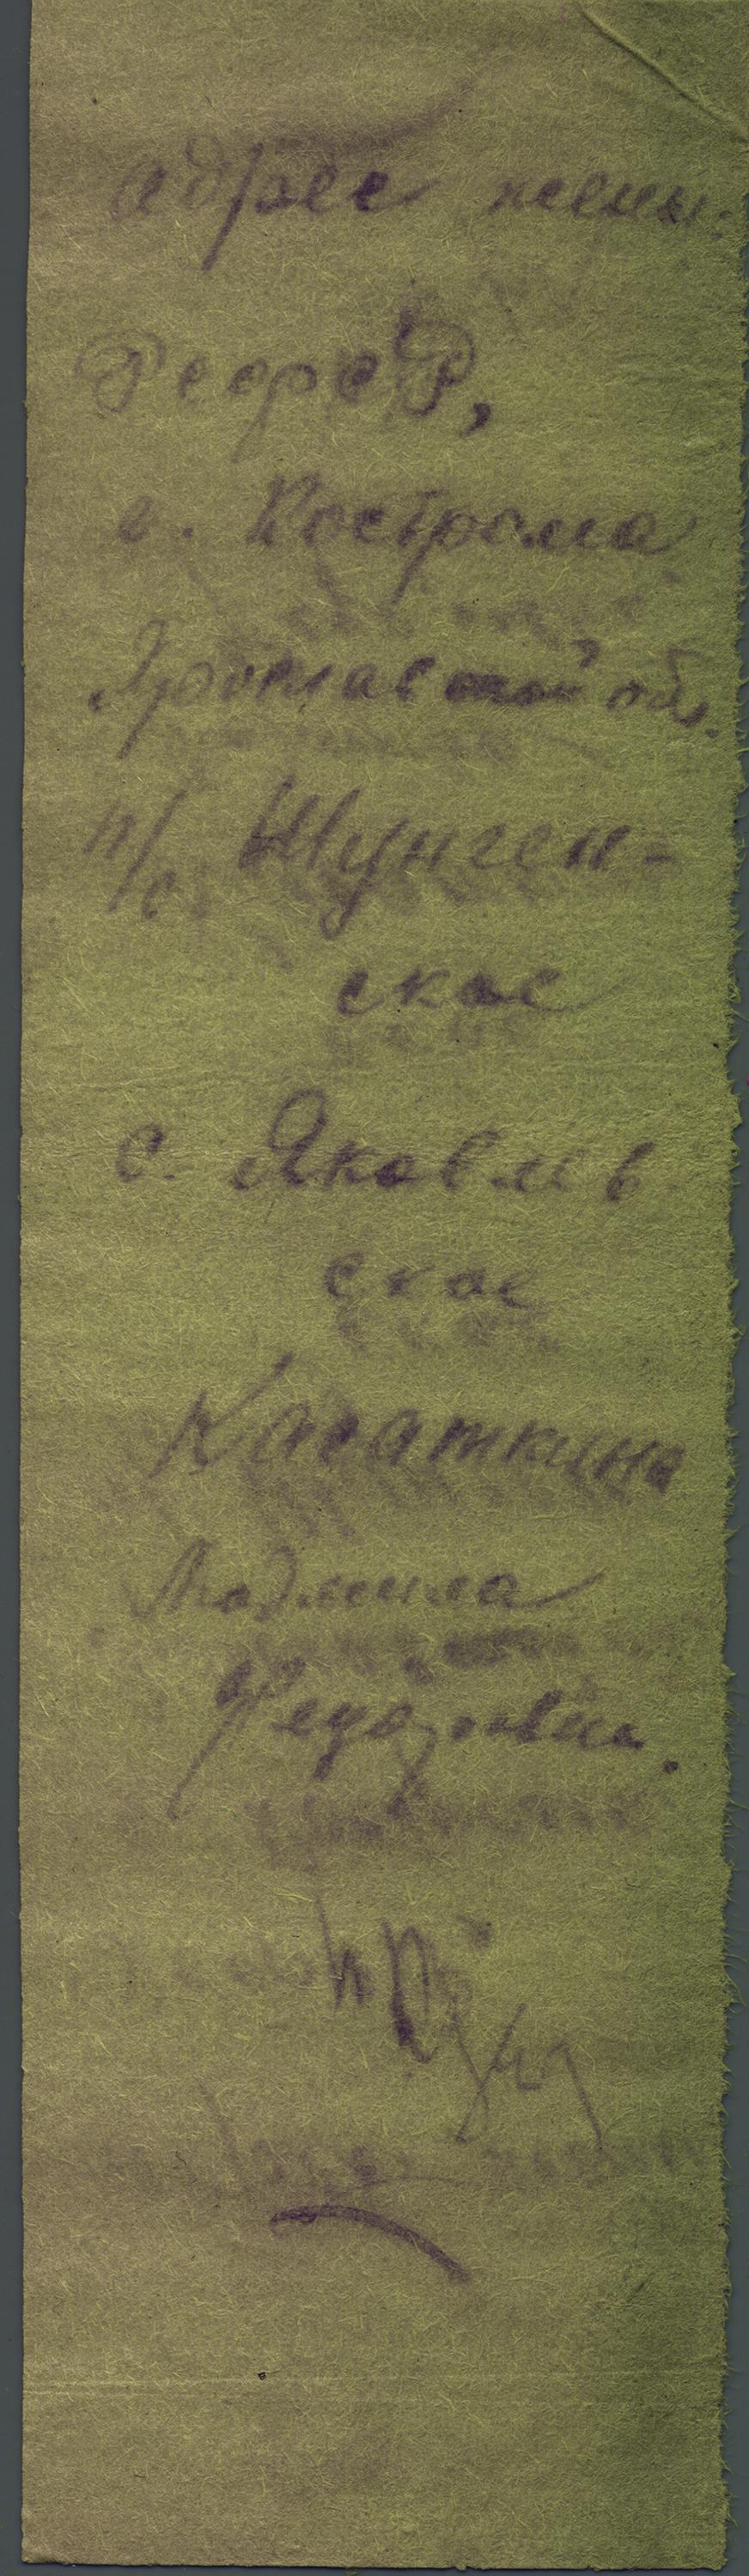 адрес жены:
РСФСР,
г. Кострома
Ярославской обл.
п/о Шунген-
ское
с. Яковлев
ское
Касаткина
Людмила
Федоровна.